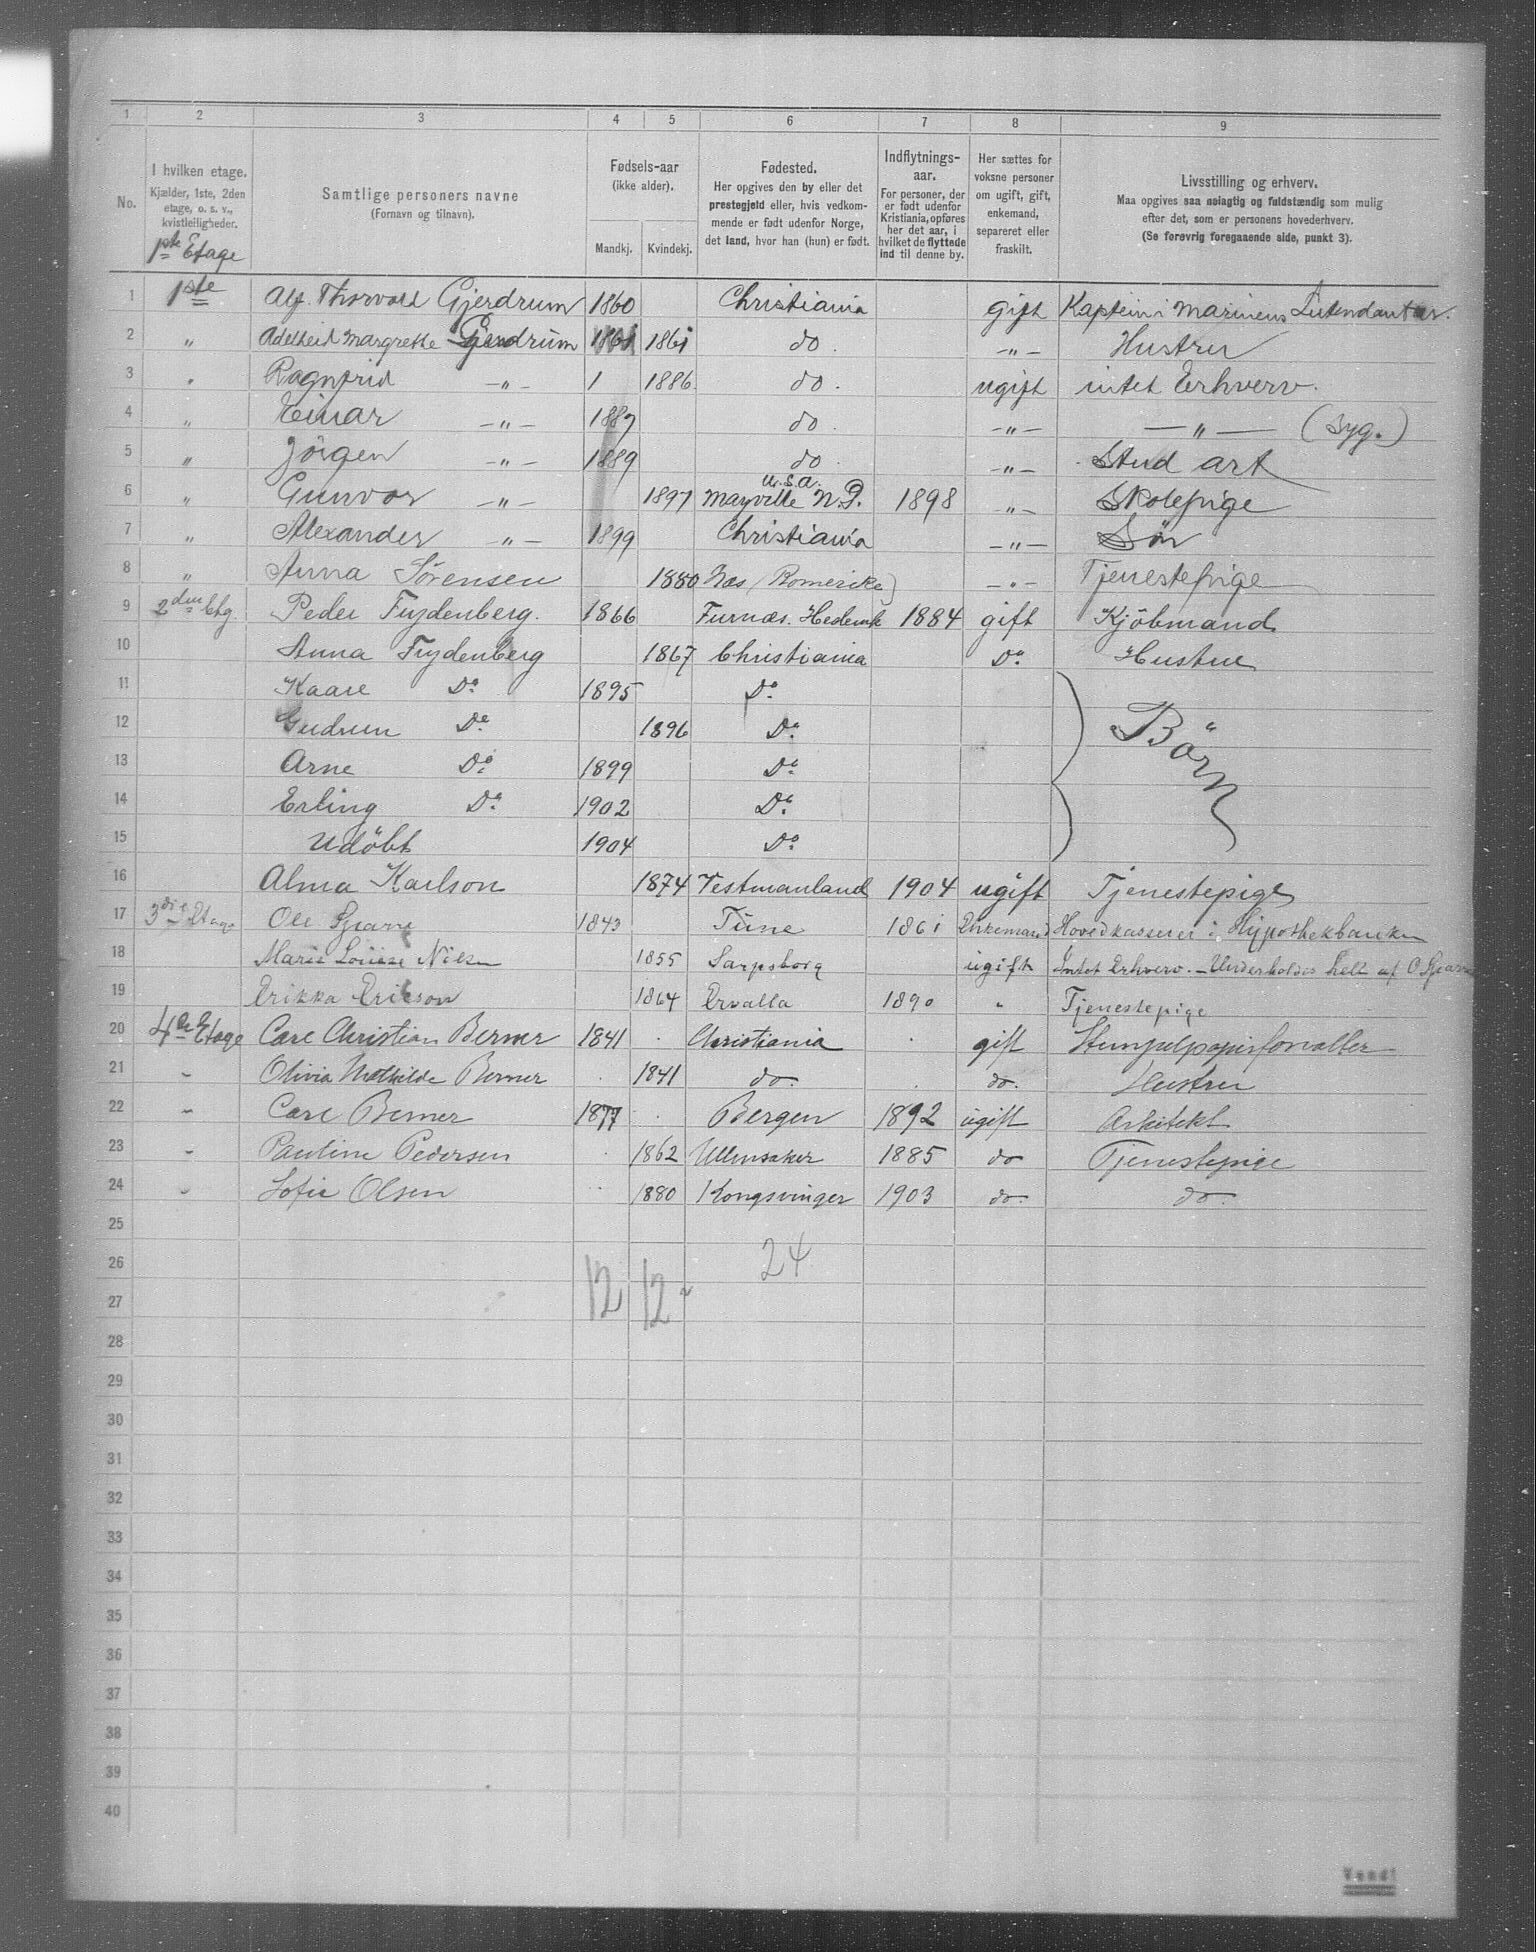 1 2 3 4 5 6 7 8 9
No.
I hvilken etage.
Kjælder, 1ste, 2den etage, o. s. v., kvistleiligheder.
Samtlige personers navne
(Fornavn og tilnavn).
Fødsels-aar
(ikke alder).
Mandkj. Kvindekj.
Fødested.
Her opgives den by eller det prestegjeld eller, hvis vedkommende er født udenfor Norge, det land, hvor han (hun) er født.
Indflytnings-aar.
For personer, der er født udenfor Kristiania, opføres her det aar, i hvilket de flyttede ind til denne by.
Her sættes for voksne personer om ugift, gift, enkemand, separeret eller fraskilt.
Livsstilling og erhverv.
Maa opgives saa nøiagtig og fuldstændig som mulig efter det, som er personens hovederhverv.
(Se forøvrig foregaaende side, punkt 3).
1ste Etage
1 1ste Alf Thorvald Gjerdrum 1860 Christiania gift Kaptein i Marinens Intendantur.
2 " Adelheid Margrethe Gjerdrum 1861 1861 do. -"- Hustru
3 " Ragnfrid -"- 1 1886 do. ugift intet Erhverv.
4 " Einar -"- 1887 do. -"- -"- (Syg.)
5 " Jörgen -"- 1889 do. -"- Stud art
6 " Gunvor -"- 1897 Mayville N.D. U.S.A. 1898 -"- Skolepige
7 " Alexander -"- 1899 Christiania -"- Sön
8 " Anna Sörensen 1880 Næs (Romerike) -"- Tjenestepige
9 2den Etg. Peder Frydenberg. 1866 Furnæs. Hedemk 1884 gift Kjöbmand.
10 Anna Frydenberg 1867 Christiania Do. Hustrue
11 Kaare Do. 1895 Do.
12 Gudrun Do. 1896 Do. Börn
13 Arne Do. 1899 Do.
14 Erling Do. 1902 Do.
15 Udöbt 1904 Do.
16 Alma Karlson 1874 Vestmanland 1904 ugift Tjenestepige
17 3die Etage Ole 1843 Tune 1861 Enkemand Hovedkasserer i Hypothekbanken
18 Marie Louise Nilsen 1855 Sarpsborg ugift Intet Erhverv. - Underholdes helt af O.
19 Erikka Erikson 1864 Ervalla 1890 " Tjenestepige
20 4de Etage Carl Christian Berner 1841 . Christiania . gift Stempelpapirforvalter
21 " Olivia Mathilde Berner . 1841 do. . do. Hustru
22 " Carl Berner 1877 . Bergen 1892 ugift Arkitekt
23 " Pauline Pedersen . 1862 Ullensaker 1885 do Tjenestepige
24 " Sofie Olsen . 1880 Kongsvinger 1903 do. do.
25
26 12 12 24
27
28
29
30
31
32
33
34
35
36
37
38
39
40
Vend!